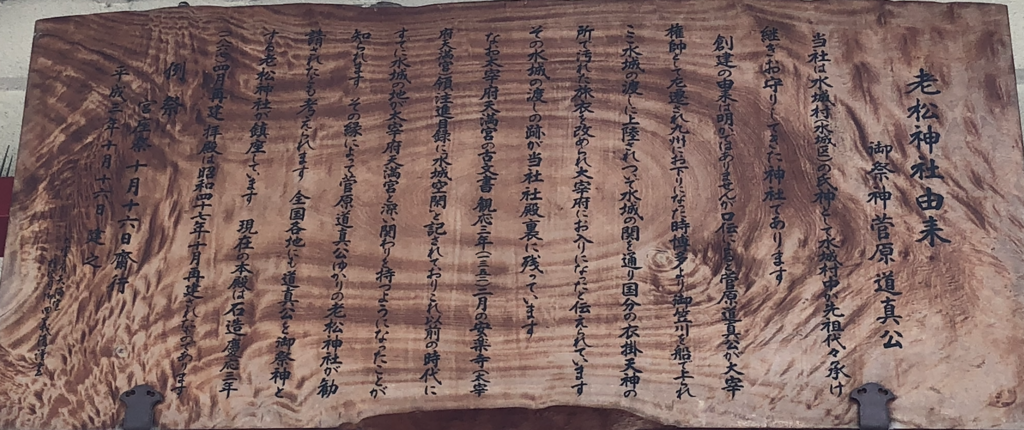 老松神社由来
御祭神菅原道真公
当社は水城村(水城区)の氏神として水城村中が先祖代々承け
継ぎお守りしてきた神社であります
創建の由来は明かではありませんが口伝によると菅原道真公が大宰
権帥として左遷され九州にお下りになった時博多より御笠川を船で上られ
ここ水城の渡しに上陸されつゞいて水城の関を通り国分の衣掛天神の
所で汚れた旅衣を改められ大宰府にお入りになったと伝えられています
その水城の渡しの跡が当社社殿裏に残っています
なお太宰府天満宮の古文書 観応三年(一三五二)二月の安楽寺(太宰
府天満宮)領注進目録に水城空閑と記されておりこれ以前の時代に
すでに水城の地が太宰府天満宮と深い関わりを持つようになったことが
知られます その縁によって菅原道真公ゆかりの老松神社が勧
請されたとも考えられます 全国各地にも道真公を御祭神と
する老松神社が鎮座しています 現在の本殿は石造慶応二年
四月再建 拝殿は昭和四七年十月再建されたものであります
例祭
宮座祭 十月十六日斎行
平成三年十月十六日 建之